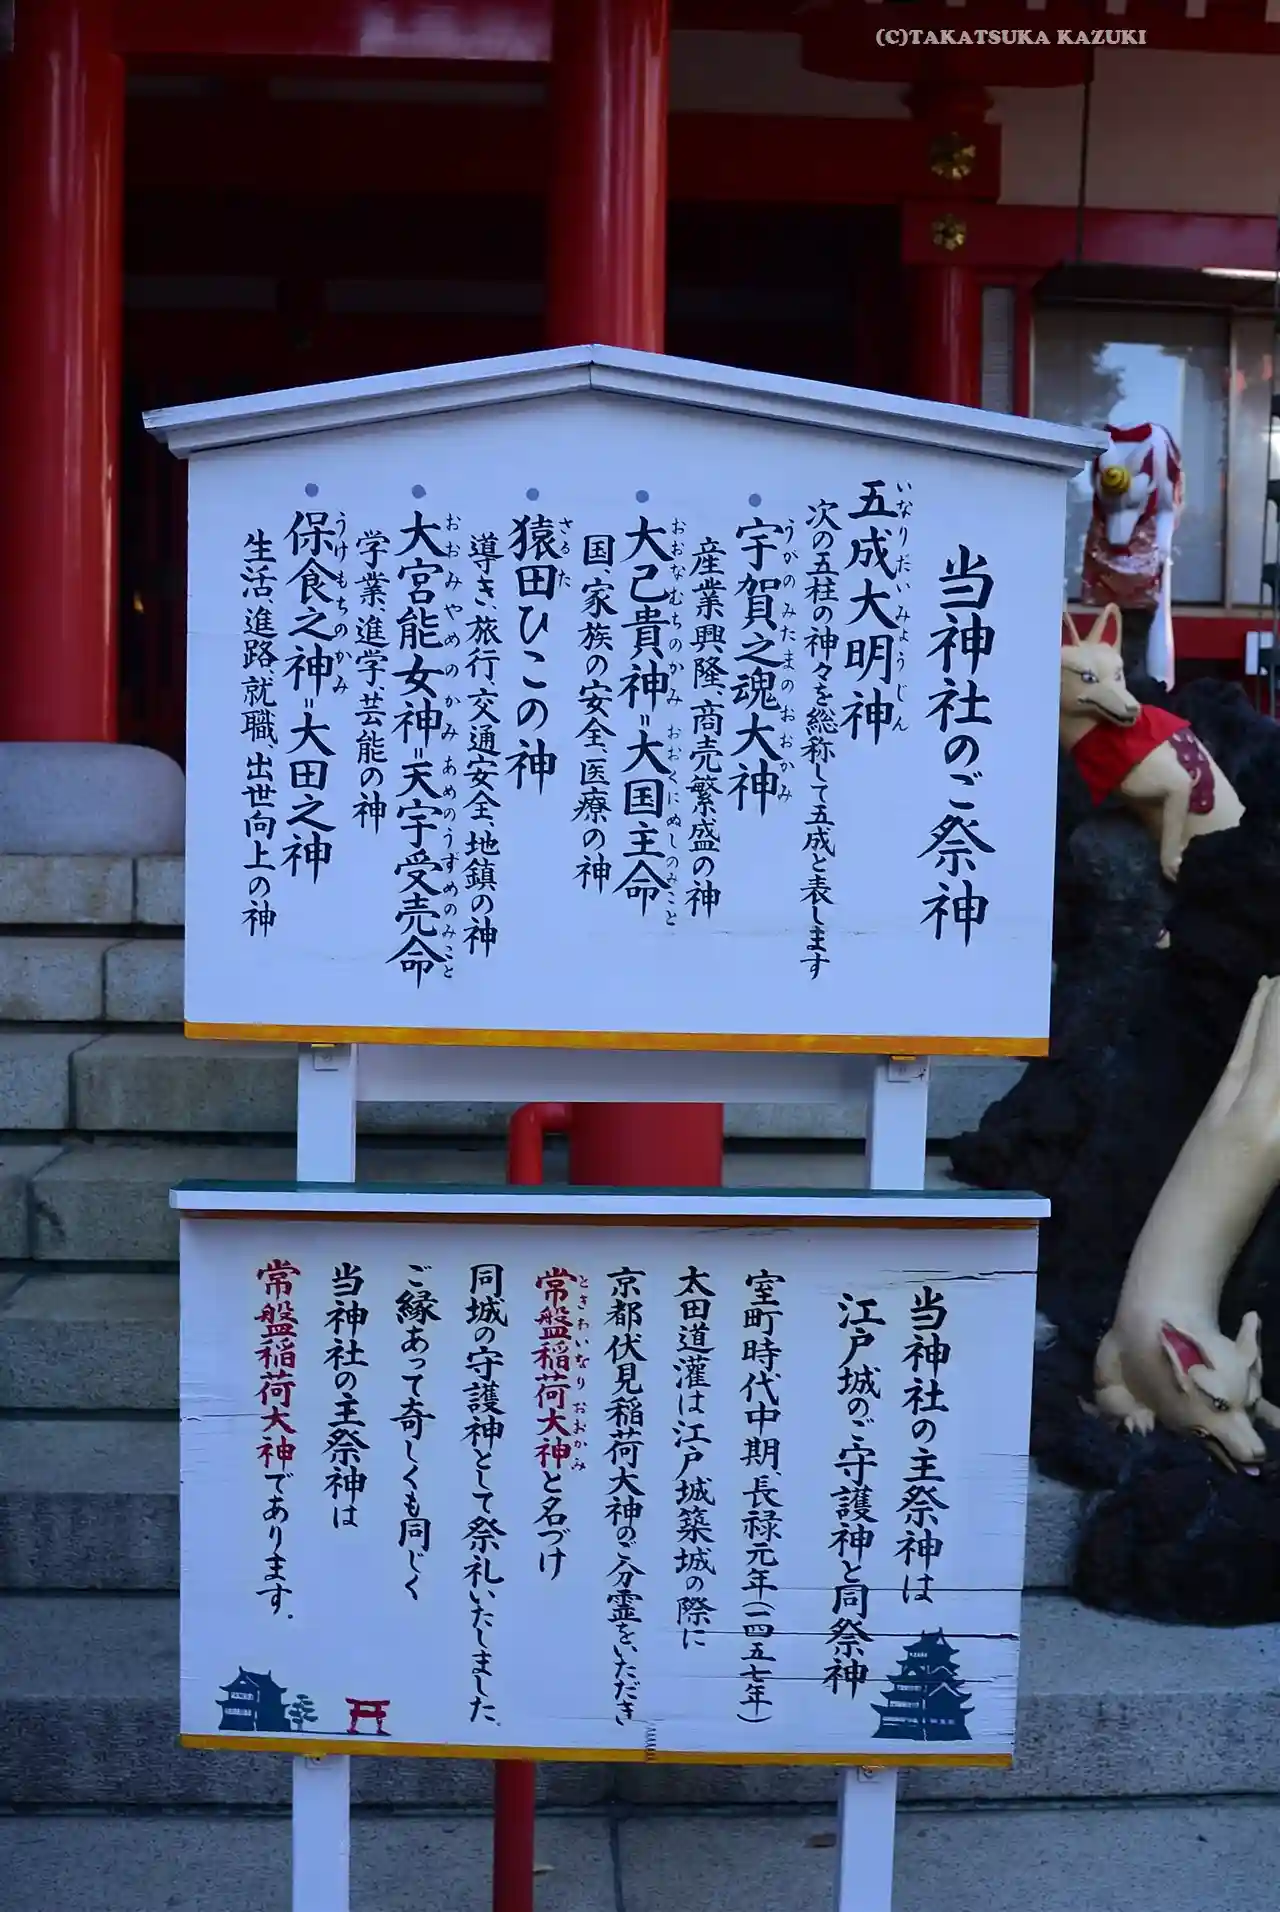 (C)TAKATSUKA KAZUKI
当神社のご祭神
五成大明神
いなりだいみょうじん
次の五柱の神々を総称して五成と表します
宇賀之魂大神
うがのみたまのおおかみ
産業興隆、商売繁盛の神
大己貴神=大国主命
おおなむちのかみ おおくにぬしのみこと
国、家族の安全、医療の神
猿田ひこの神
さるた
導き、旅行、交通安全、地鎮の神
大宮能女神=天宇受売命
おおみやめのかみ あめのうずめのみこと
学業、進学、芸能の神
保食之神=大田之神
うけもちのかみ
生活、進路、就職、出世向上の神
当神社の主祭神は
江戸城のご守護神と同祭神
室町時代中期、長禄元年(一四五七年)
太田道灌は江戸城築城の際に
京都伏見稲荷大神のご分霊をいただき
常盤稲荷大神と名づけ
ときわいなりおおかみ
同城の守護神として祭礼いたしました。
ご縁あって奇しくも同じく
当神社の主祭神は
常盤稲荷大神であります。